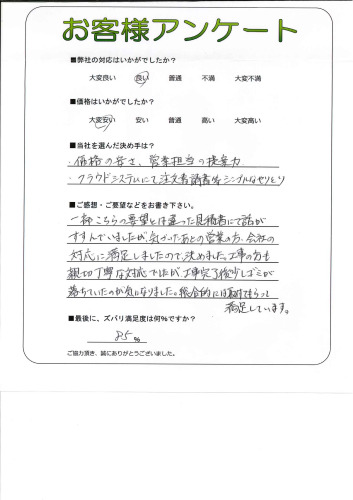 お客様アンケート
■弊社の対応はいかがでしたか？
大変良い 良い 普通 不満 大変不満
■価格はいかがでしたか？
大変安い 安い 普通 高い 大変高い
■当社を選んだ決め手は？
・価格の安さ、営業担当の提案力
・クラウドシステムにて注文書請書等シンプルなやりとり
■ご感想・ご要望などをお書き下さい。
一部こちらの要望とは違った見積書にて話が
すすんでいましたが気づいたあとの営業の方、会社の
対応に満足しましたので決めました。工事の方も
親切丁寧な対応でしたが工事完了後少しゴミが
落ちていたのが気になりました。総合的には取付てもらって
満足しています。
■最後に、ズバリ満足度は何%ですか？
85 %
ご協力頂き、誠にありがとうございました。